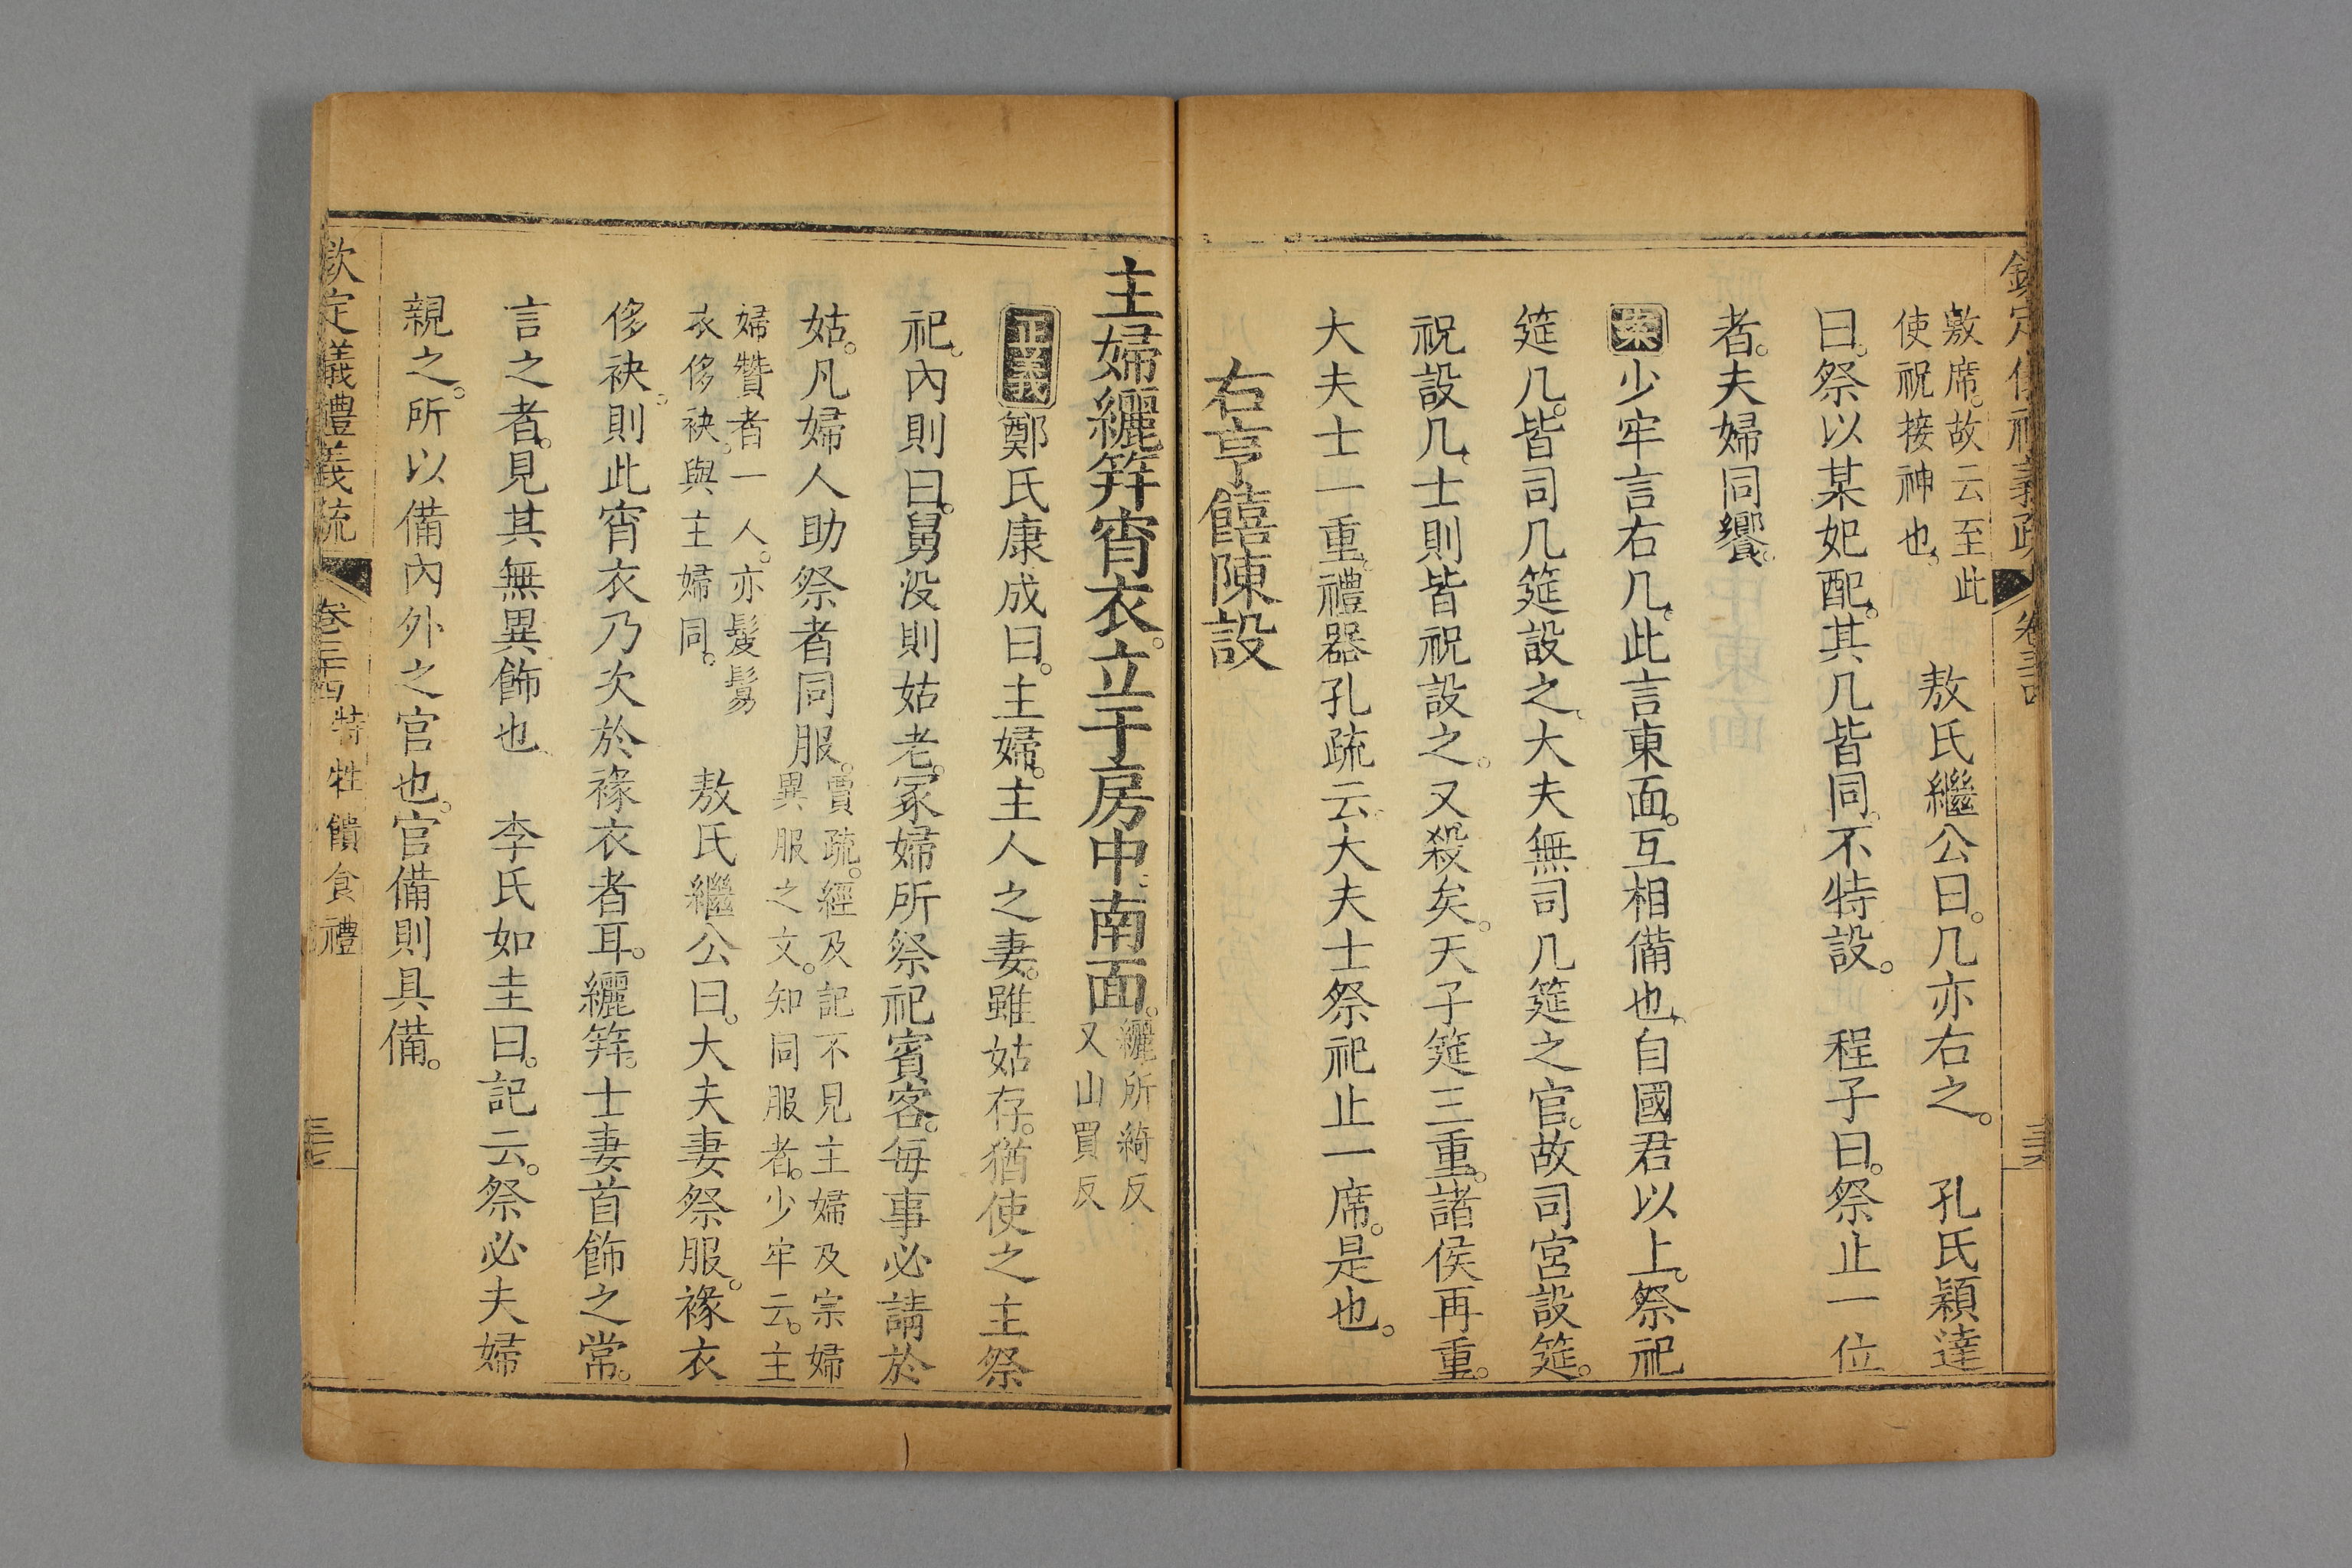 欽定儀禮義疏 卷三十四
敷席。故云至此
使祝接神也。
敖氏繼公曰。几亦右之。 孔氏穎達
曰。祭以某妃配。其几皆同。不特設。 程子曰。祭止一位
者。夫婦同饗。
案少牢言右几。此言東面。互相備也。自國君以上。祭祀
筵几。皆司几筵設之。大夫無司几筵之官。故司宮設筵。
祝設几。士則皆祝設之。又殺矣。天子筵三重。諸侯再重。
大夫士一重。禮器孔疏云。大夫士祭祀止一席。是也。
右亨饎陳設
主婦纚笄宵衣。立于房中。南面。
纚所綺反
又山買反
正義鄭氏康成曰。主婦。主人之妻。雖姑存。猶使之主祭
祀。內則曰。舅没則姑老。冢婦所祭祀賓客。每事必請於
姑。凡婦人助祭者同服。
賈疏。經及記不見主婦及宗婦
異服之文。知同服者。少牢云。主
婦贊者一人。亦髲鬄
衣侈袂。與主婦同。
敖氏繼公曰。大夫妻祭服。褖衣
侈袂。則此宵衣乃次於褖衣者耳。纚笄。士妻首飾之常。
言之者。見其無異飾也 李氏如圭曰。記云。祭必夫婦
親之。所以備內外之官也。官備則具備。
欽定儀禮義疏 卷三十四 特牲饋食禮